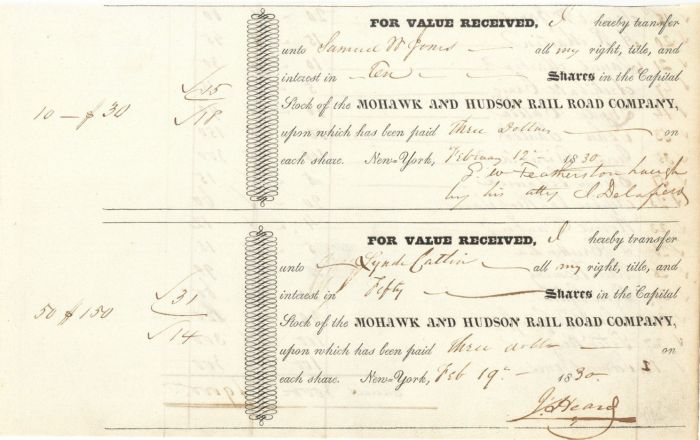 FOR VALUE RECEIVED, I hereby transfer
unto Samuel W Jones all my right, title, and
interest in Ten Shares in the Capital
10 — $ 30
15
18
Stock of the MOHAWK AND HUDSON RAIL ROAD COMPANY,
upon which has been paid Three Dollars on
each share. New-York, February 12 1830.
G. W Featherstonhaugh
by his atty J Delafield
FOR VALUE RECEIVED, I hereby transfer
unto Lynde Catlin all my right, title, and
interest in Fifty Shares in the Capital
50 $ 150
31
14
Stock of the MOHAWK AND HUDSON RAIL ROAD COMPANY,
upon which has been paid three dolls on
each share. New-York, Feb 19th 1830.
J. Heard